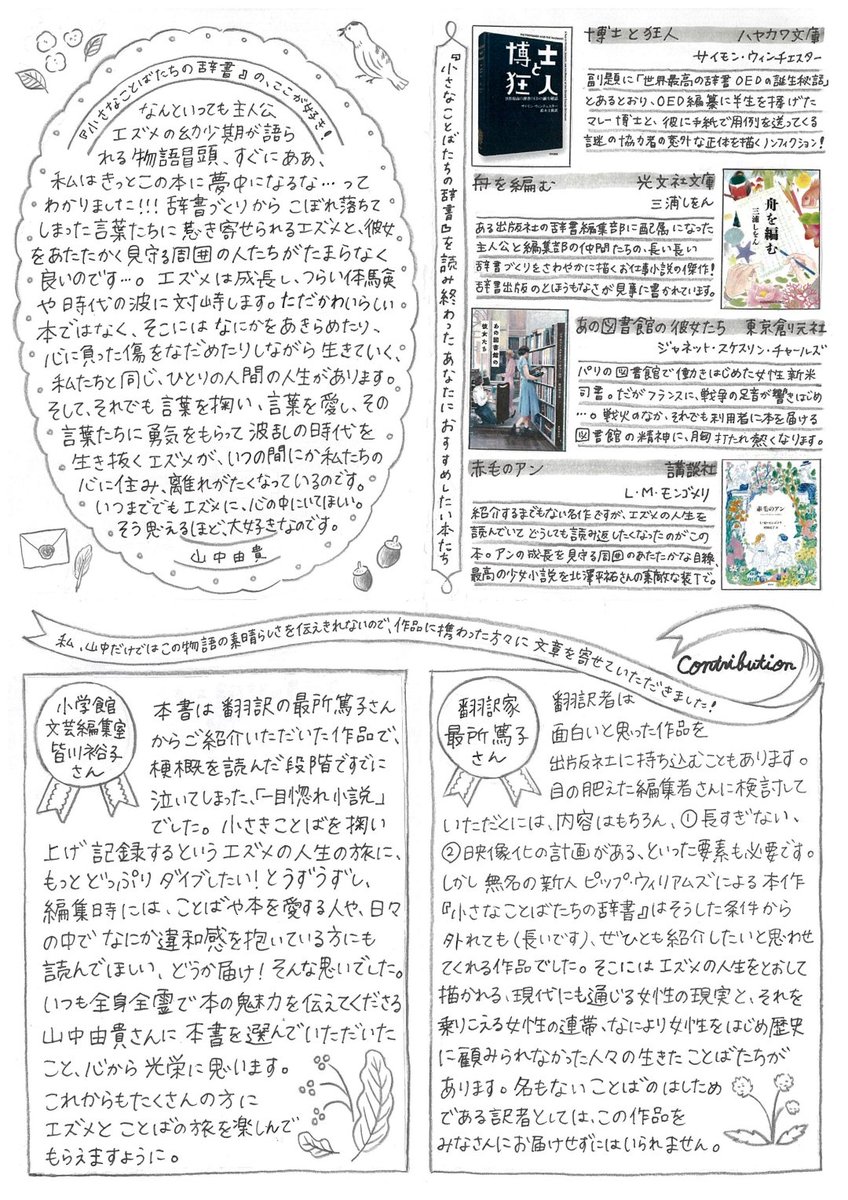 『小さなことばたちの辞書』の、ここが好き!
なんといっても主人公
エズメの幼少期が語ら
れる物語冒頭、すぐにああ、
私はきっとこの本に夢中になるな…って
わかりました!!! 辞書づくりから こぼれ落ちて
しまった言葉たちに 惹き寄せられるエズメと、彼女
をあたたかく見守る周囲の人たちがたまらなく
良いのです…。エズメは成長し、つらい体験
や時代の波に対峙します。ただかわいらしい
本ではなく、そこには なにかをあきらめたり、
心に負った傷をなだめたりしながら生きていく、
私たちと同じ、ひとりの人間の人生があります。
そして、それでも言葉を掬い、言葉を愛し、その
言葉たちに勇気をもらって 波乱の時代を
生き抜くエズメが、いつの間にか私たちの
心に住み、離れがたくなっているのです。
いつまででもエズメに、心の中にいてほしい。
そう思えるほど、大好きなのです。
山中由貴
『小さなことばたちの辞書』を読み終わったあなたにおすすめしたい本たち
博士と狂人
博士と狂人 ハヤカワ文庫
サイモン・ウィンチェスター
副題に「世界最高の辞書OEDの誕生秘話」
とあるとおり、OED編纂に半生を捧げた
マレー博士と、彼に手紙で用例を送ってくる
謎の協力者の意外な正体を描くノンフィクション!
舟を編む 光文社文庫
三浦しをん
ある出版社の辞書編集部に配属になった
主人公と編集部の仲間たちの、長い長い
辞書づくりをさわやかに描くお仕事小説の傑作!
辞書出版のとほうもなさが見事に書かれています。
舟を編む
三浦しをん
あの図書館の彼女たち
あの図書館の彼女たち 東京創元社
ジャネット・スケスリン・チャールズ
パリの図書館で働きはじめた女性新米
司書。だがフランスに、戦争の足音が響きはじめ
…。戦火のなか、それでも利用者に本を届ける
図書館の精神に、胸打たれ熱くなります。
赤毛のアン 講談社
L・M・モンゴメリ
紹介するまでもない名作ですが、エズメの人生を
読んでいて どうしても読み返したくなったのがこの
本。アンの成長を見守る周囲のあたたかな目線、
最高の少女小説を北澤平祐さんの素敵な装丁で。
赤毛のアン
私、山中だけではこの物語の素晴らしさを伝えきれないので、作品に携わった方々に 文章を寄せていただきました!
Contribution
小学館
文芸編集室
皆川裕子
さん
本書は 翻訳の最所篤子さん
からご紹介いただいた作品で、
梗概を読んだ段階ですでに
泣いてしまった、「一目惚れ小説」
でした。小さきことばを掬い
上げ 記録するという エズメの人生の旅に、
もっと どっぷり ダイブしたい! とうずうずし、
編集時には、ことばや本を愛する人や、日々
の中で なにか違和感を抱いている方にも
読んでほしい、どうか届け! そんな思いでした。
いつも全身全霊で本の魅力を伝えてくださる
山中由貴さんに 本書を選んでいただいた
こと、心から 光栄に思います。
これからもたくさんの方に
エズメと ことばの旅を楽しんで
もらえますように。
翻訳家
最所篤子
さん
翻訳者は
面白いと思った作品を
出版社に持ち込むこともあります。
目の肥えた編集者さんに検討して
いただくには、内容はもちろん、①長すぎない、
②映像化の計画がある、といった要素も必要です。
しかし 無名の新人 ピップ・ウィリアムズによる 本作
『小さなことばたちの辞書』はそうした条件から
外れても(長いです)、ぜひとも紹介したいと思わせ
てくれる作品でした。そこには エズメの人生をとおして
描かれる、現代にも通じる女性の現実と、それを
乗りこえる女性の連帯、なにより女性をはじめ歴史
に顧みられなかった人々の生きた ことばたちが
あります。名もない ことばの はしため
である訳者としては、この作品を
みなさんにお届けせずにはいられません。